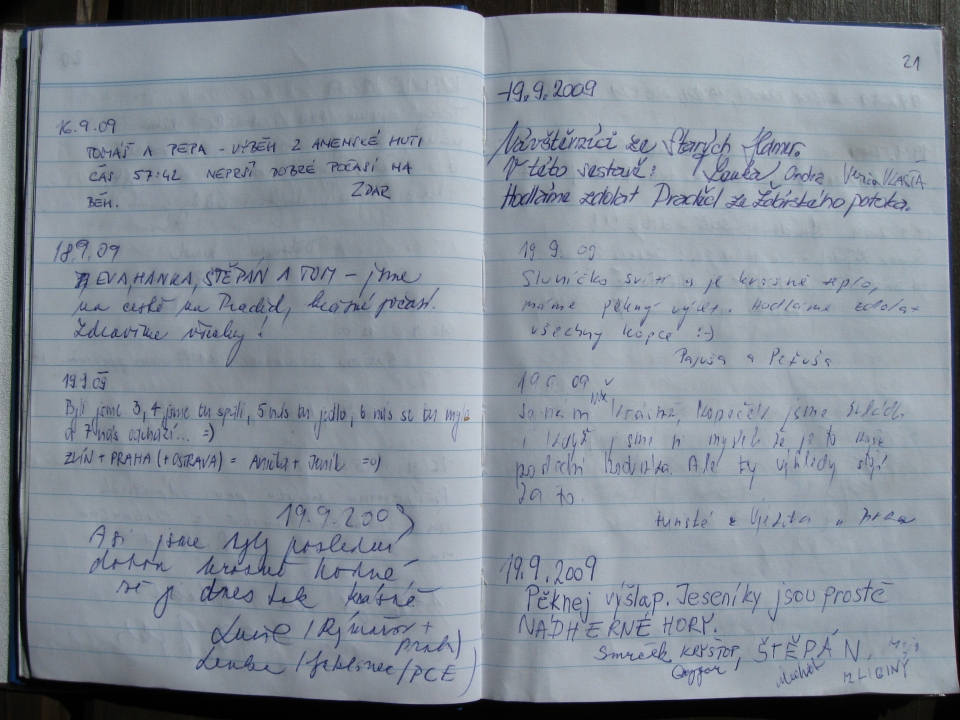 16.9.09
TOMÁŠ A PEPA - VÝBĚH Z ANENSKÉ HUTI
ČAS 57:42 NEPRŠÍ DOBRÉ POČASÍ NA
BĚH. ZDAR
18.9.09
EVA, HANKA, ŠTĚPÁN A TOM - jsme
na cestě na Praděd, krásné počasí.
Zdravíme všechny!
19.9.09
Byli jsme 3, 4 jsme tu spali, 5 nás tu jedlo, 6 nás se tu mylo
a 7 nás odchází... =)
ZLÍN + PRAHA (+OSTRAVA) = Anička + Jeník =o)
19.9.2009
Asi jsme byly poslední
dobou hrozně hodné
že je dnes tak krásně
Lucie /Rýmařov +
Praha)
Lenka /Jablonec/PCE)
21
19.9.2009
Návštěvníci ze Starých Hamrů.
V této sestavě: Lenka Ondra VLASŤA
Hodláme zdolat Praděd ze Ždírského potoka.
19 9. 09
Sluníčko svítí a je krásné teplo,
máme pěkný výlet. Hodláme zdolat
všechny kopce :-)
Pajuša a Peťuša
19 09
kopeček jsme
i když jsme si mysleli že je to
poslední Ale ty výhledy stojí
za to.
turisté z
19.9.2009
Pěknej výšlap. Jeseníky jsou prostě
NÁDHERNÉ HORY.
Smrček KRYŠTOP, ŠTĚPÁN.
Michal